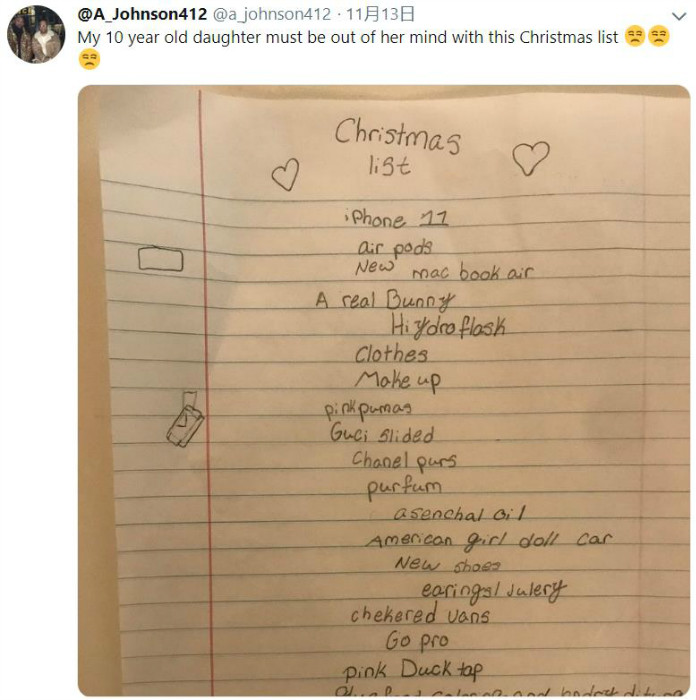 @A_Johnson412 @a_johnson412 · 11月13日
My 10 year old daughter must be out of her mind with this Christmas list 😒😒
😒
Christmas
list
iPhone 11
air pods
New mac book air
A real Bunny
Hiydroflask
Clothes
Make up
pink pumas
Guci slided
Chanel purs
purfum
asenchal oil
American girl doll car
New shoes
earings/ Julery
chekered vans
Go pro
pink Duck tap